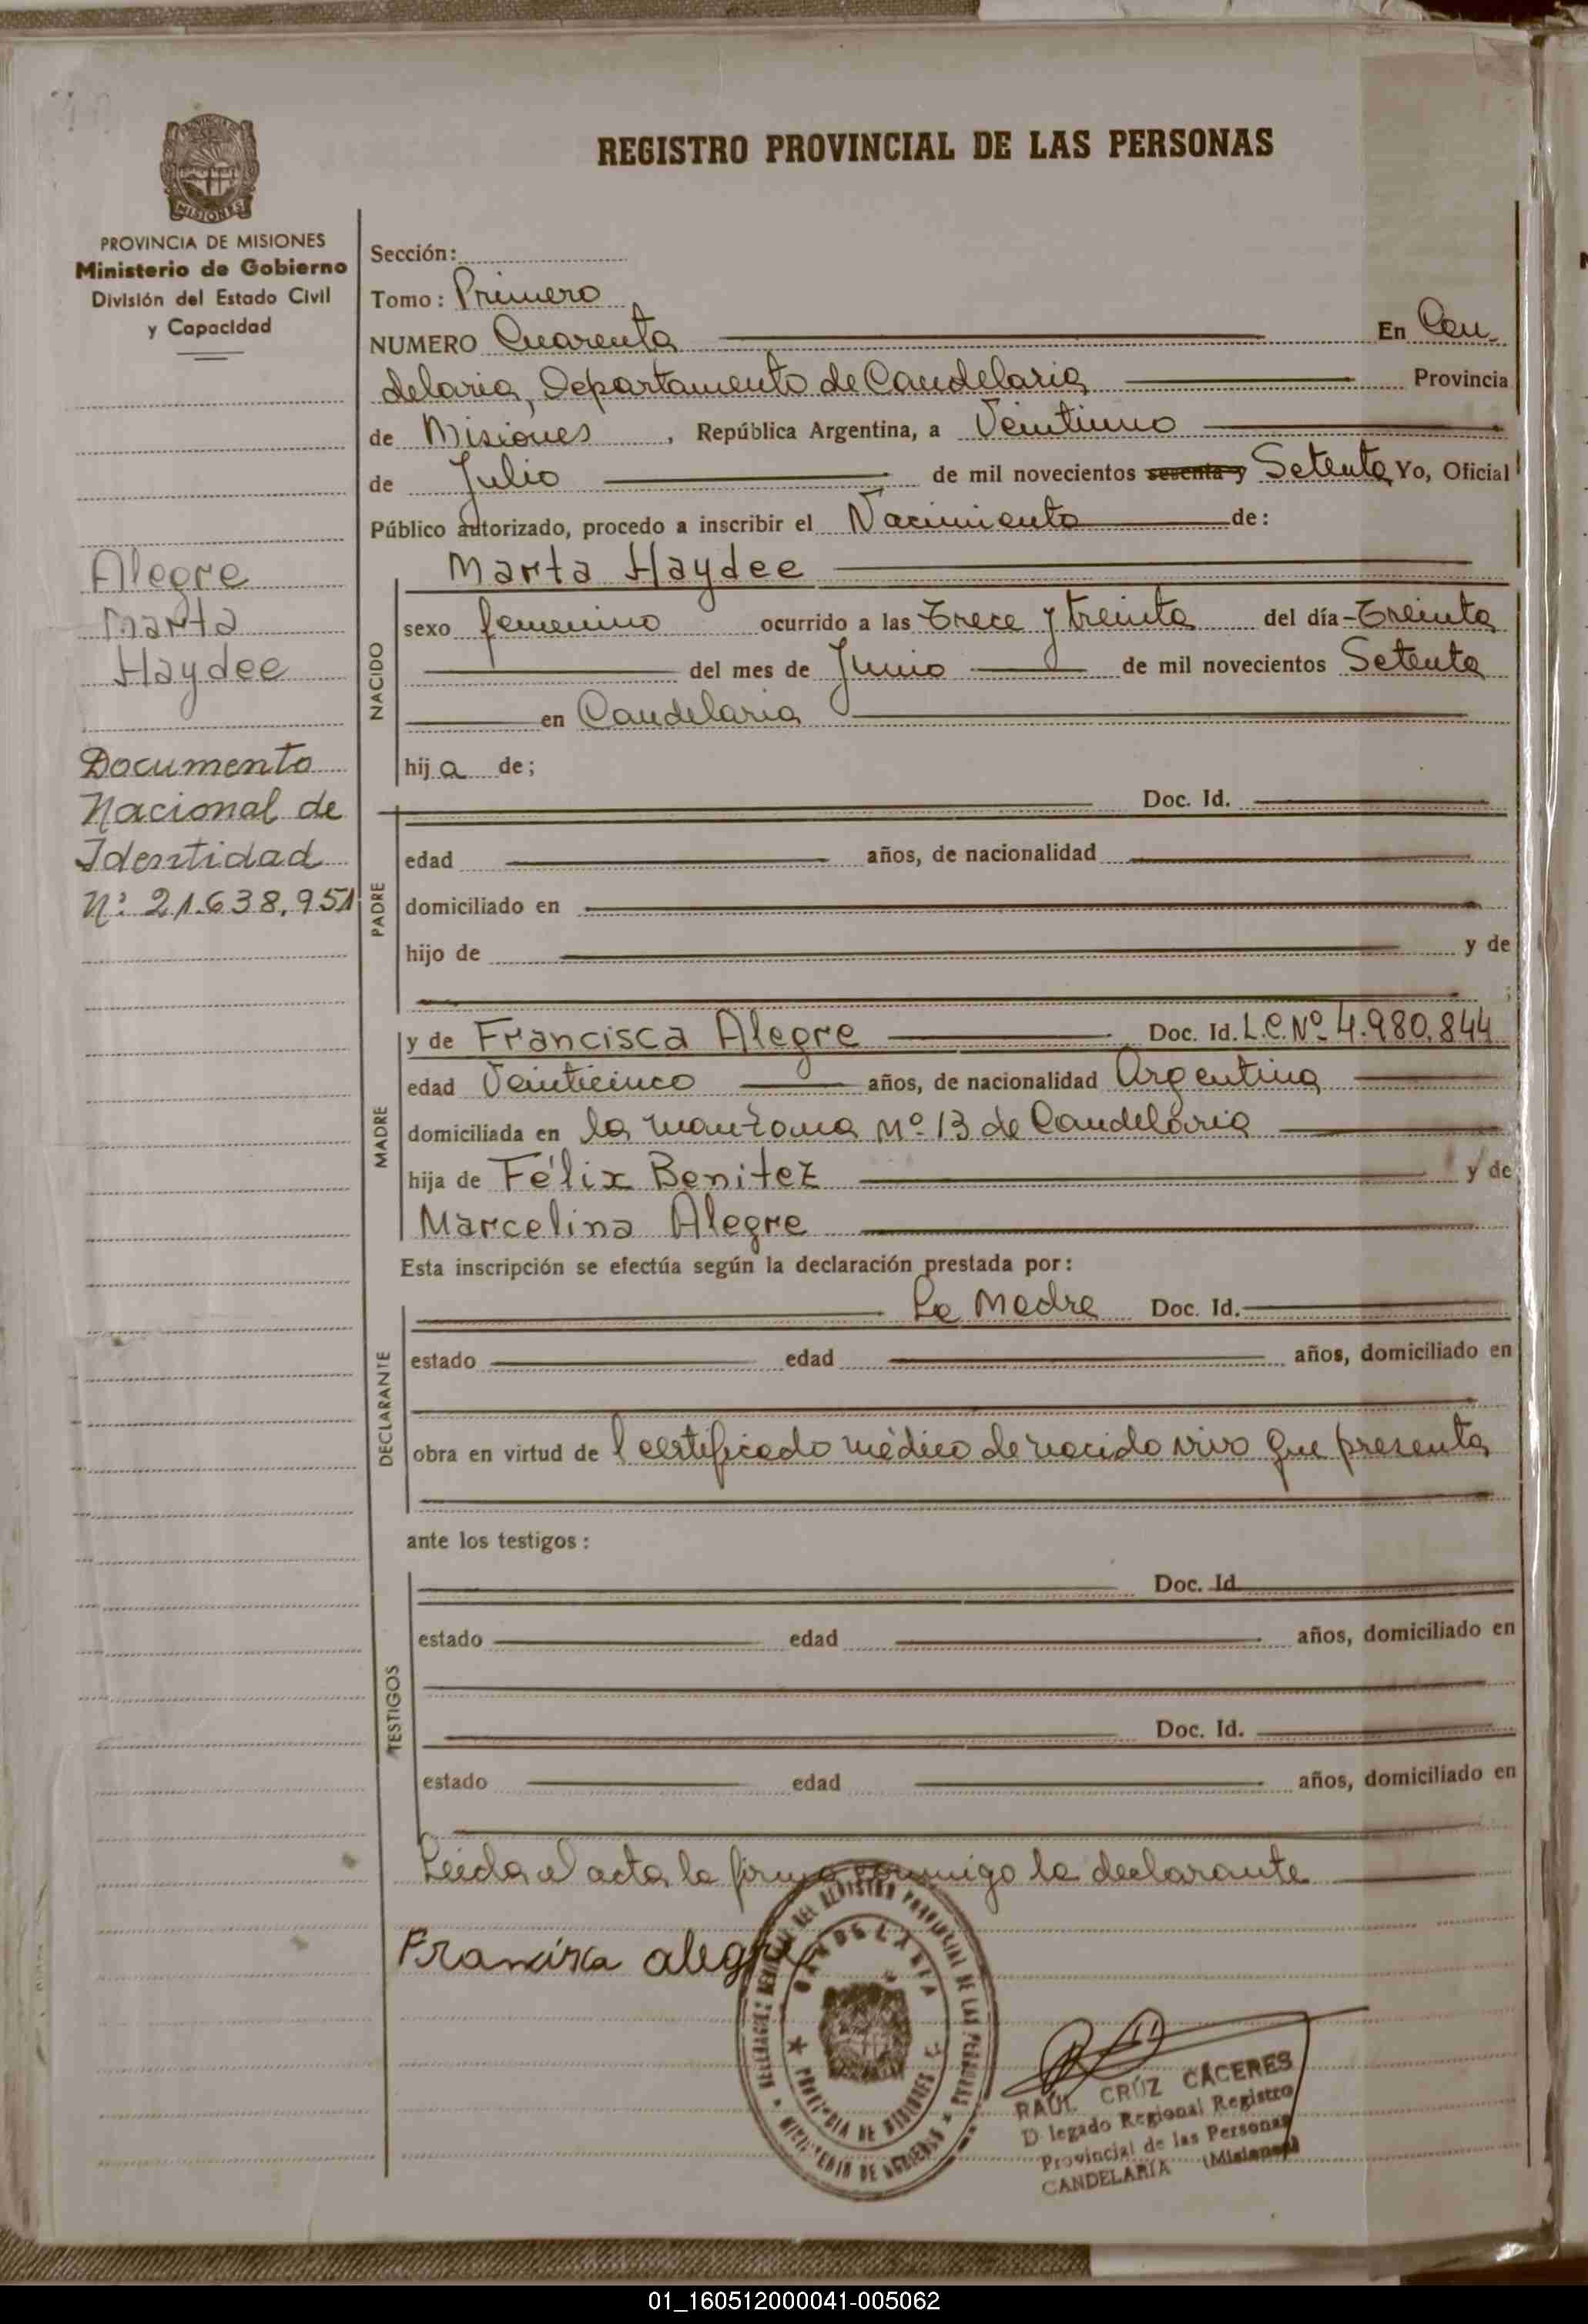 REGISTRO PROVINCIAL DE LAS PERSONAS
MISIONES
PROVINCIA DE MISIONES
Ministerio de Gobierno
División del Estado Civil
y Capacidad
Alegre
Marta
Haydee
Documento
Nacional de
Identidad
Nº 21.638.951
Sección:
Tomo: Primero
NUMERO Cuarenta En Can
delaria, Departamento de Candelaria Provincia
de Misiones, República Argentina, a Veintiuno
de Julio de mil novecientos sesenta y Setenta Yo, Oficial
Público autorizado, procedo a inscribir el Nacimiento de:
Marta Haydee
NACIDO
sexo femenino ocurrido a las Trece y treinta del día Treinta
del mes de Junio de mil novecientos Setenta
en Candelaria
hija de;
PADRE
Doc. Id.
edad años, de nacionalidad
domiciliado en
hijo de y de
;
MADRE
y de Francisca Alegre Doc. Id. L.C. Nº 4.980.844
edad Veinticinco años, de nacionalidad Argentina
domiciliada en la manzana Nº 13 de Candelaria
hija de Félix Benitez y de
Marcelina Alegre
Esta inscripción se efectúa según la declaración prestada por:
DECLARANTE
La Madre Doc. Id.
estado edad años, domiciliado en
obra en virtud de l certificado médico de nacido vivo que presenta
ante los testigos:
TESTIGOS
Doc. Id
estado edad años, domiciliado en
Doc. Id.
estado edad años, domiciliado en
Leida el acta la firma conmigo la declarante
Francisca alegre
DEL REGISTRO PROVINCIAL DE LAS PERSONAS
CANDELARIA
PROVINCIA DE MISIONES
MINISTERIO DE GOBIERNO
RAÚL CRÚZ CÁCERES
D legado Regional Registro
Provincial de las Personas
CANDELARIA (Misiones)
01_160512000041-005062